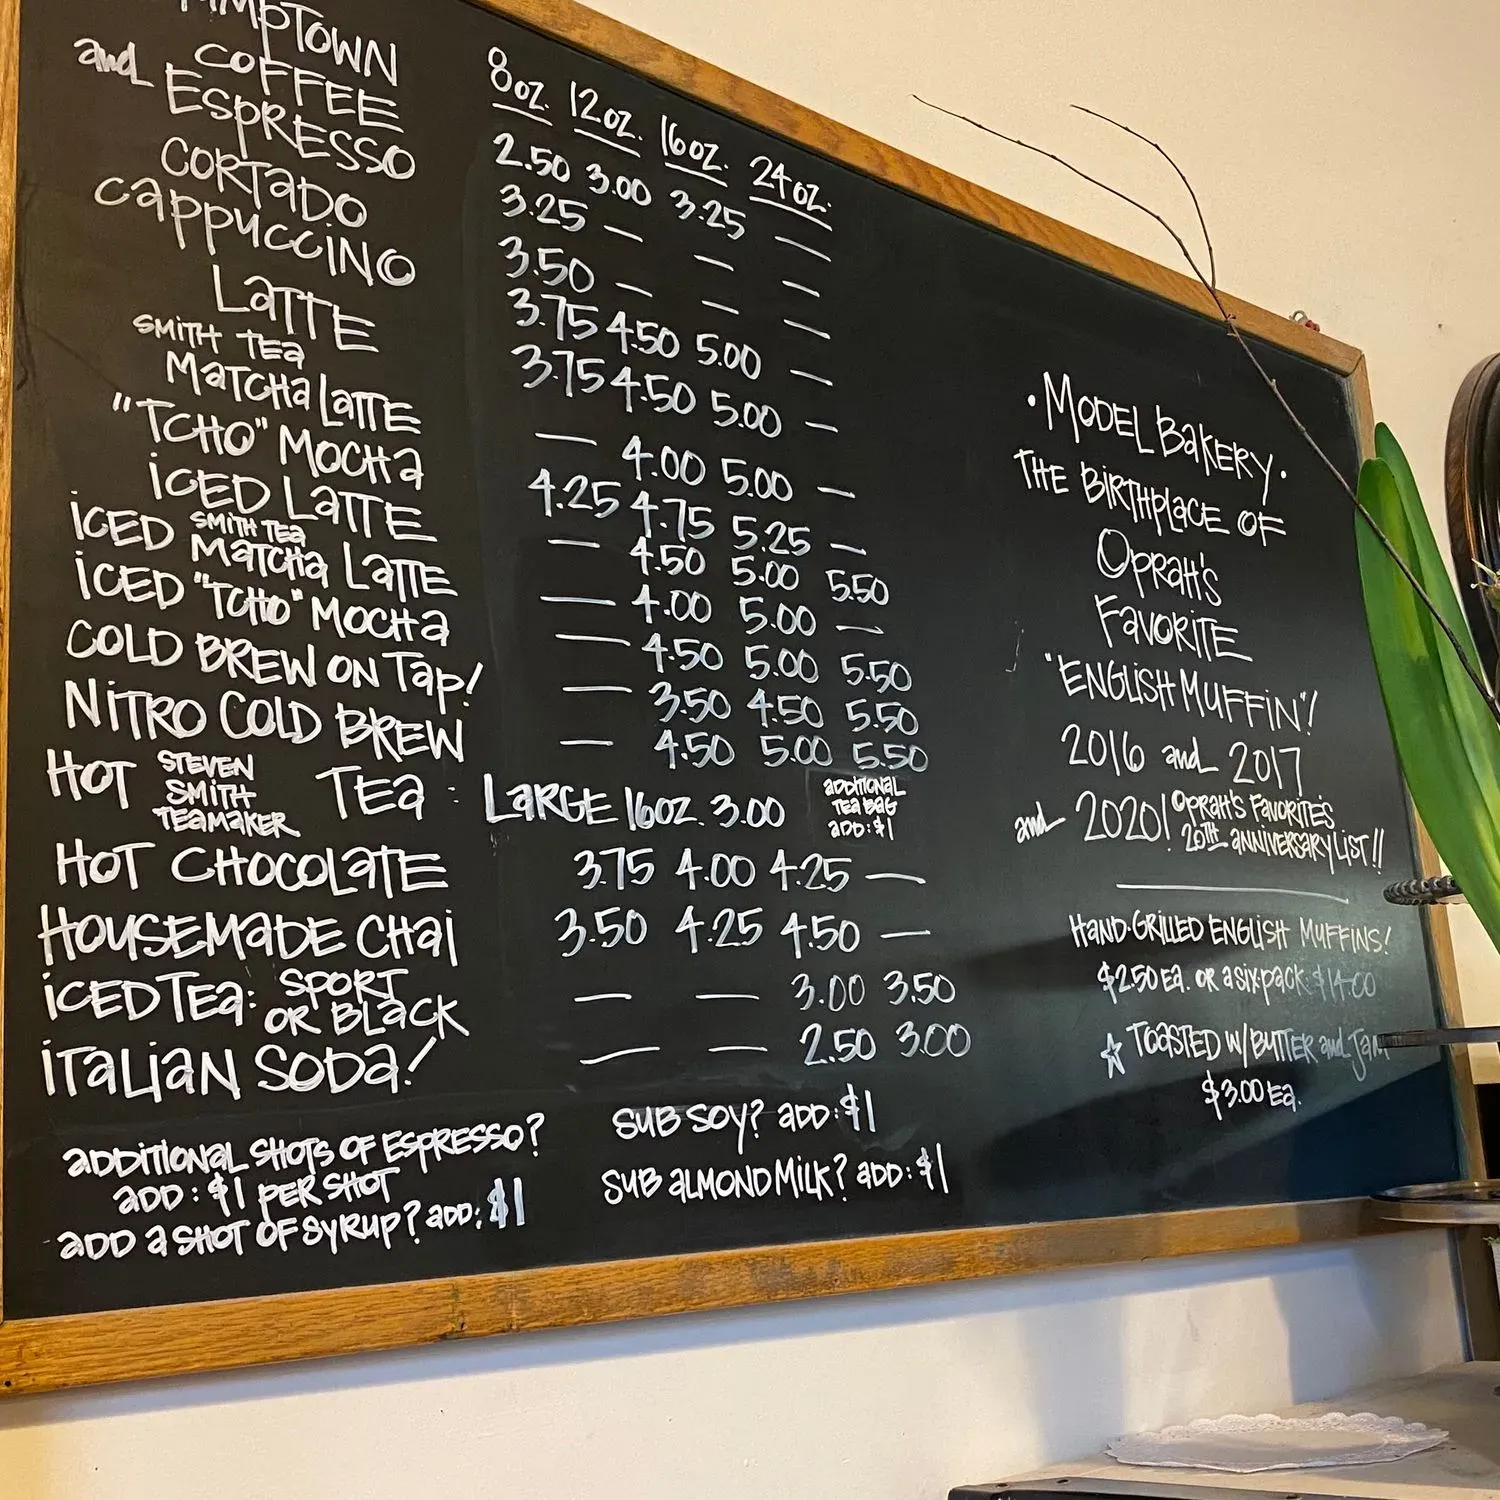 TOWN
and COFFEE
ESPRESSO
CORTADO
CAPPUCCINO
LATTE
SMITH TEA
MATCHA LATTE
"TCHO" MOCHA
ICED LATTE
ICED SMITH TEA MATCHA LATTE
ICED "TCHO" MOCHA
COLD BREW ON TAP!
NITRO COLD BREW
8oz. 12oz. 16oz. 24oz.
2.50 3.00 3.25 —
3.25 — — —
3.50 — — —
3.75 4.50 5.00 —
3.75 4.50 5.00 —
— 4.00 5.00 —
4.25 4.75 5.25 —
— 4.50 5.00 5.50
— 4.00 5.00 —
— 4.50 5.00 5.50
— 3.50 4.50 5.50
— 4.50 5.00 5.50
HOT STEVEN SMITH TEAMAKER TEA: LARGE 16oz. 3.00
ADDITIONAL
TEA BAG
ADD: $1
HOT CHOCOLATE 3.75 4.00 4.25 —
HOUSEMADE CHAI 3.50 4.25 4.50 —
ICED TEA: SPORT OR BLACK — — 3.00 3.50
ITALIAN SODA! — — 2.50 3.00
ADDITIONAL SHOTS OF ESPRESSO?
ADD: $1 PER SHOT
ADD A SHOT OF SYRUP? ADD: $1
SUB SOY? ADD: $1
SUB ALMOND MILK? ADD: $1
• MODEL BAKERY •
THE BIRTHPLACE OF
OPRAH'S
FAVORITE
"ENGLISH MUFFIN"!
2016 and 2017
and 2020! OPRAH'S FAVORITE'S
20TH ANNIVERSARY LIST!!
HAND-GRILLED ENGLISH MUFFINS!
$2.50 EA. OR A SIX-PACK $14.00
☆ TOASTED W/ BUTTER and JAM
$3.00 EA.